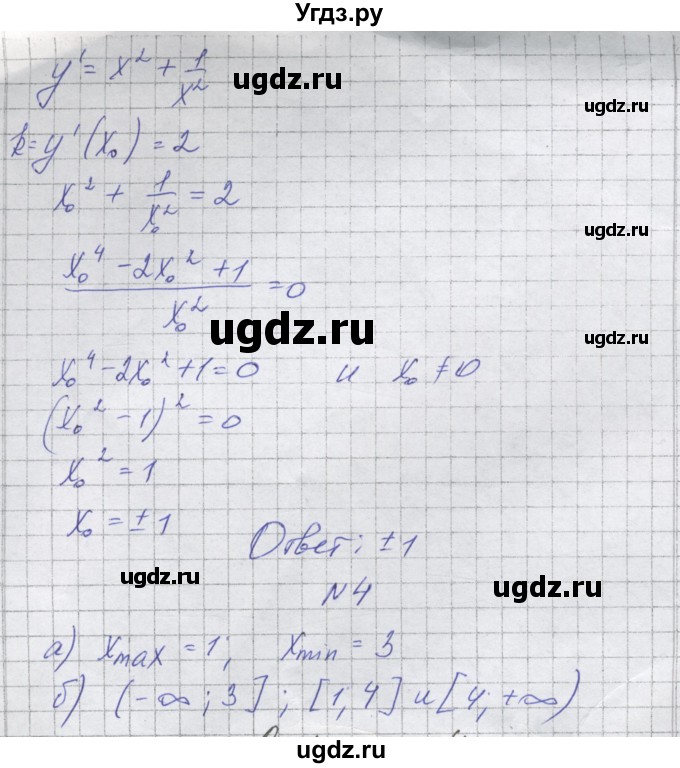 Угдз.ру
y' = x² + 1/x²
ugdz.ru
ugdz.ru
k = y'(x₀) = 2
x₀² + 1/x₀² = 2
ugdz.ru
(x₀⁴ - 2x₀² + 1)/x₀² = 0
ugdz.ru
ugdz.ru
x₀⁴ - 2x₀² + 1 = 0 и x₀ ≠ 0
(x₀² - 1)² = 0
x₀² = 1
x₀ = ± 1
Ответ: ± 1
ugdz.ru
ugdz.ru
N 4
а) xmax = 1; xmin = 3
б) (-∞; 3]; [1; 4] и [4; +∞)
ugdz.ru